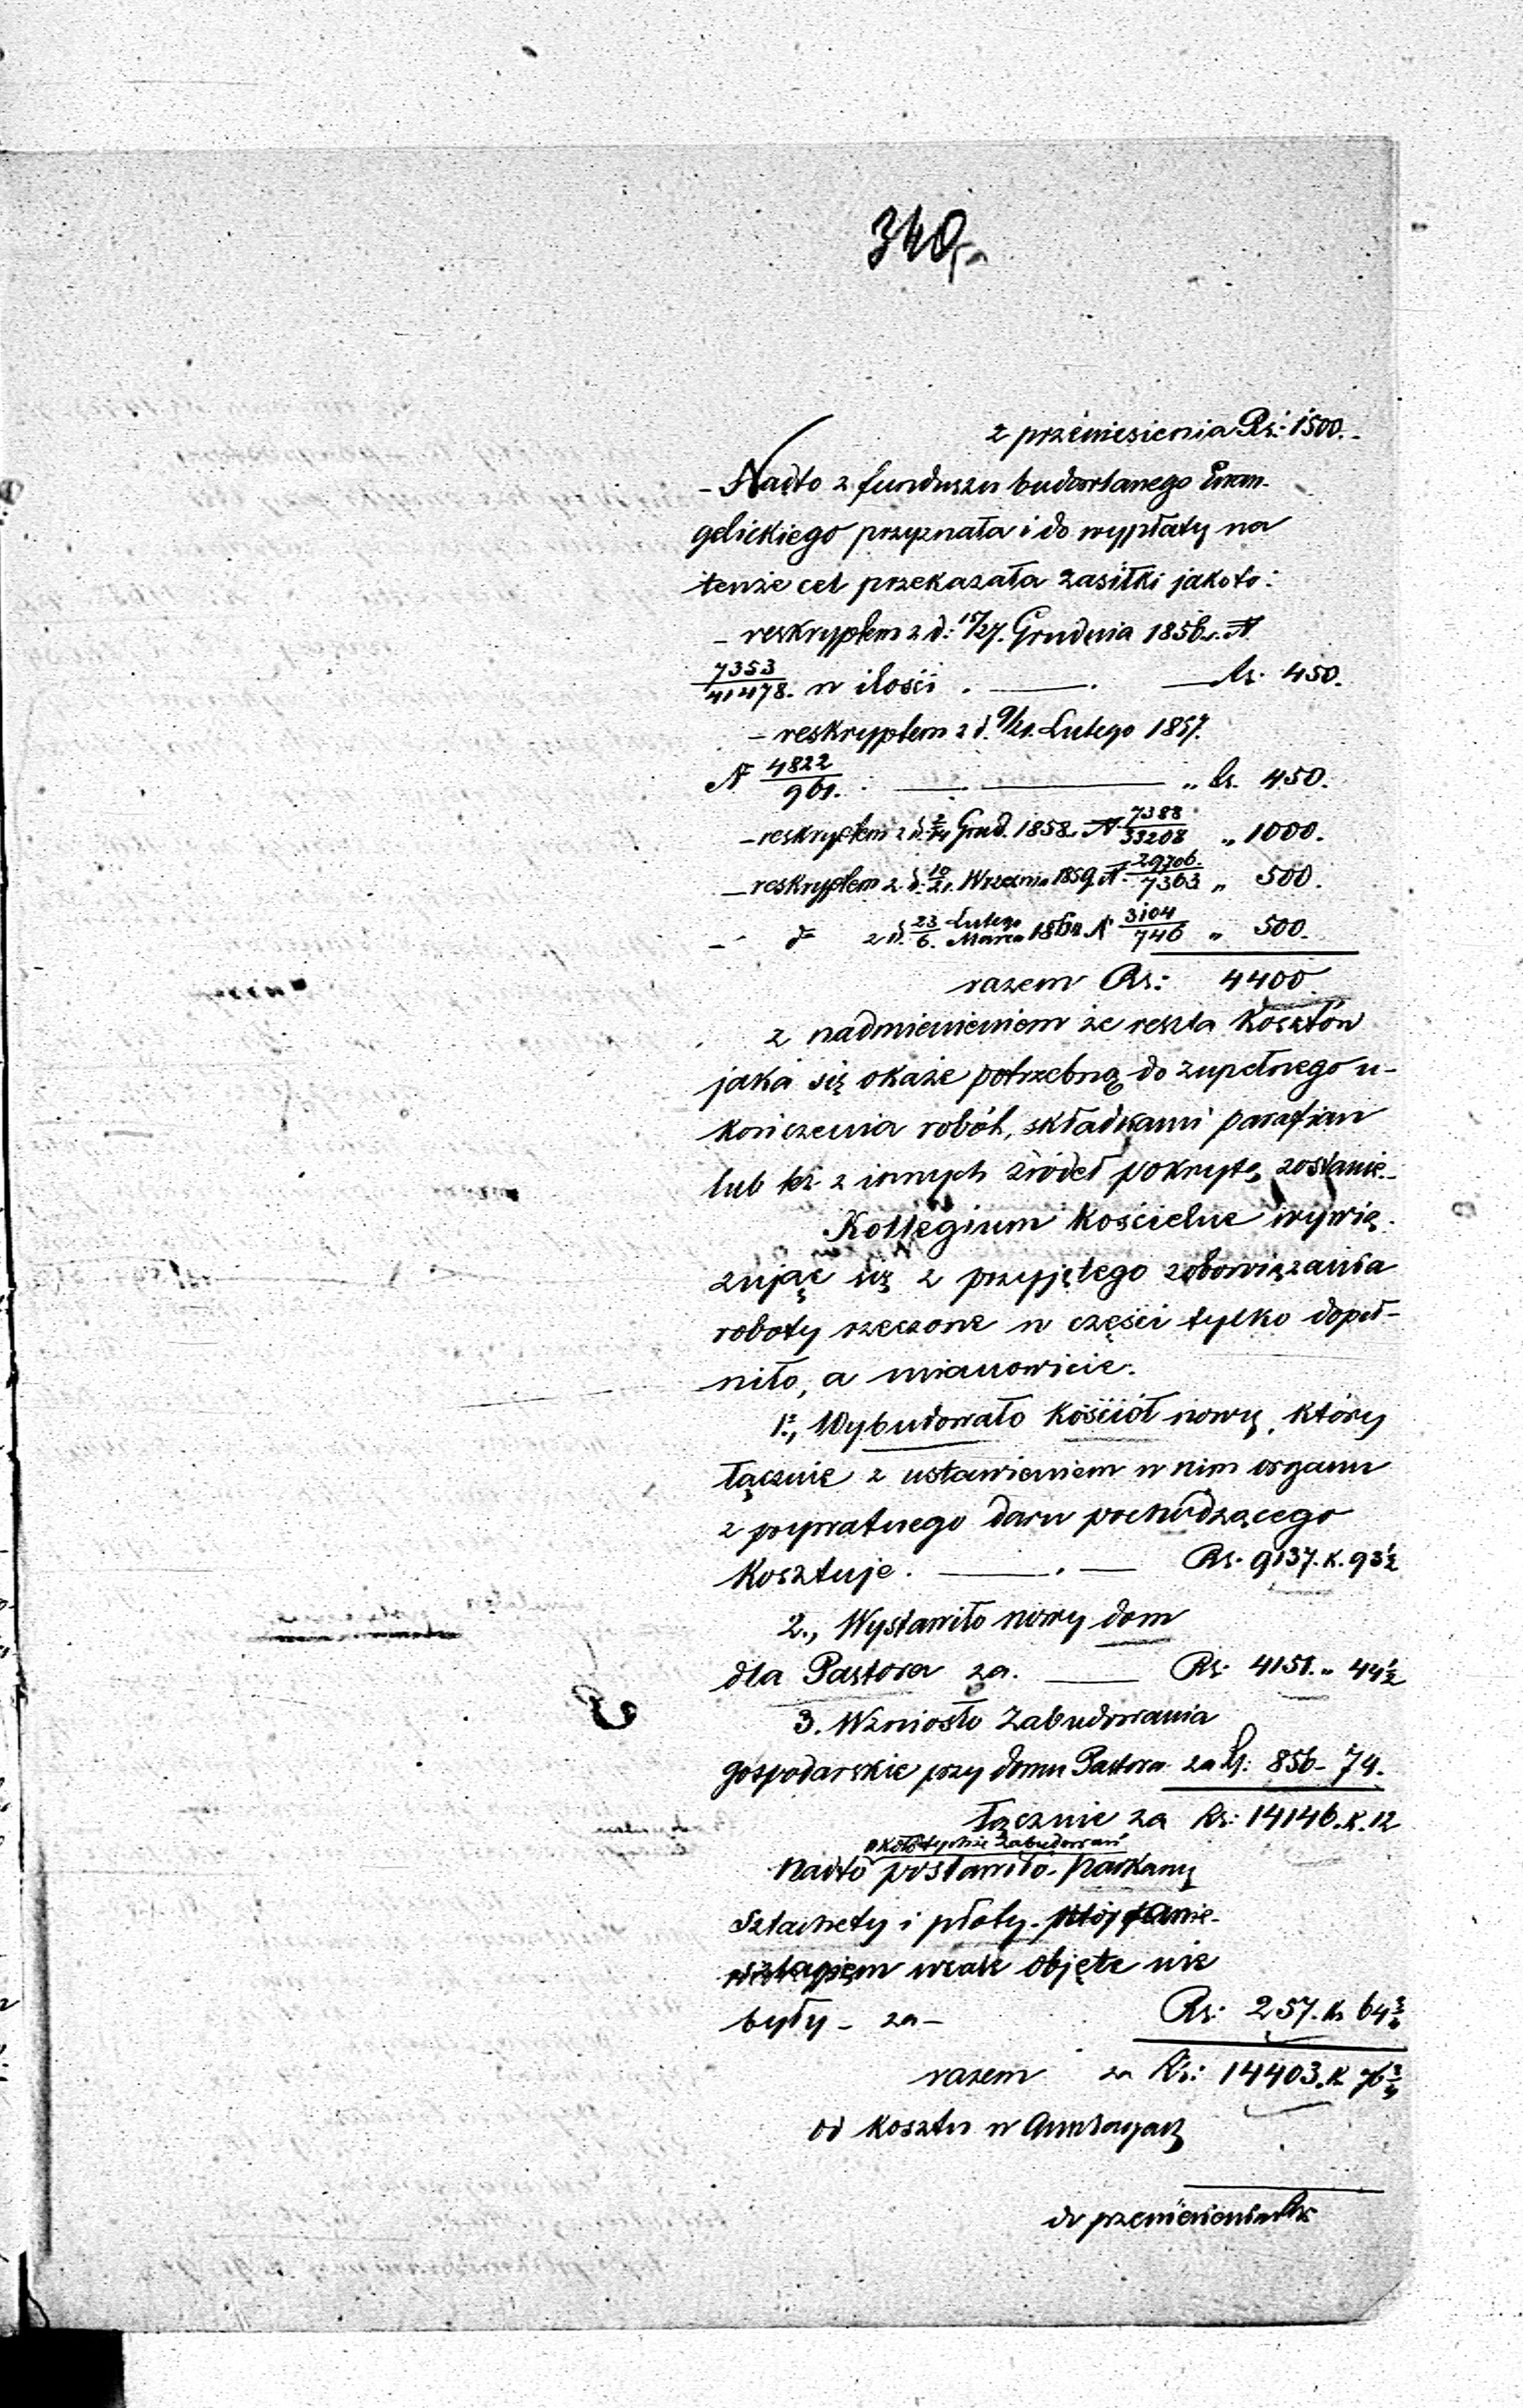 340.
z przeniesienia Rs: 1500.
– Nadto z funduszu budowlanego Ewan-
gelickiego przyznała i do wypłaty na
tenże cel przekazała zasiłki jakoto:
– reskryptem z d: 15/27. Grudnia 1856 r. N
7353/41478. w ilości . —— . —— Rs. 450.
– reskryptem z d. 9/21. Lutego 1857.
N 4822/961. . —— . —— „ Rs. 450.
– reskryptem z d. 2/14 Grud. 1858 N. 7388/33208 „ 1000.
– reskryptem z d. 10/21. Wrzesnia 1859 N. 29706./7363 „ 500.
– d° z d. 23/6. Lutego/Marca 1860 N 3104/746 „ 500.
razem Rs: 4400.
z nadmienieniem że reszta kosztów
jaka się okaże potrzebną do zupełnego u-
kończenia robót, składkami parafian
lub też z innych źródeł pokrytą zostanie.–
Kollegium Kościelne wywią-
zując się z przyjętego zobowiązania
roboty rzeczone w części tylko dopeł-
niło, a mianowicie:
1°, Wybudowało kościół nowy, który
łącznie z ustawieniem w nim organu
z prywatnego daru pochodzącego
kosztuje . —— . — Rs. 9137. k. 93½
2., Wystawiło nowy dom
dla Pastora za. —— Rs. 4151. „ 44½
3. Wzniosło Zabudowania
gospodarskie przy domu Pastora za Rs: 856 – 74.
łącznie za Rs: 14146. k. 12
około tychże zabudowań
nadto postawiło parkany
sztachety i płoty
wcale objęte nie
były – za – Rs: 257. k. 64¾
razem za Rs: 14403. k 76¾
od kosztu w Anszlagach
do przeniesienia Rs